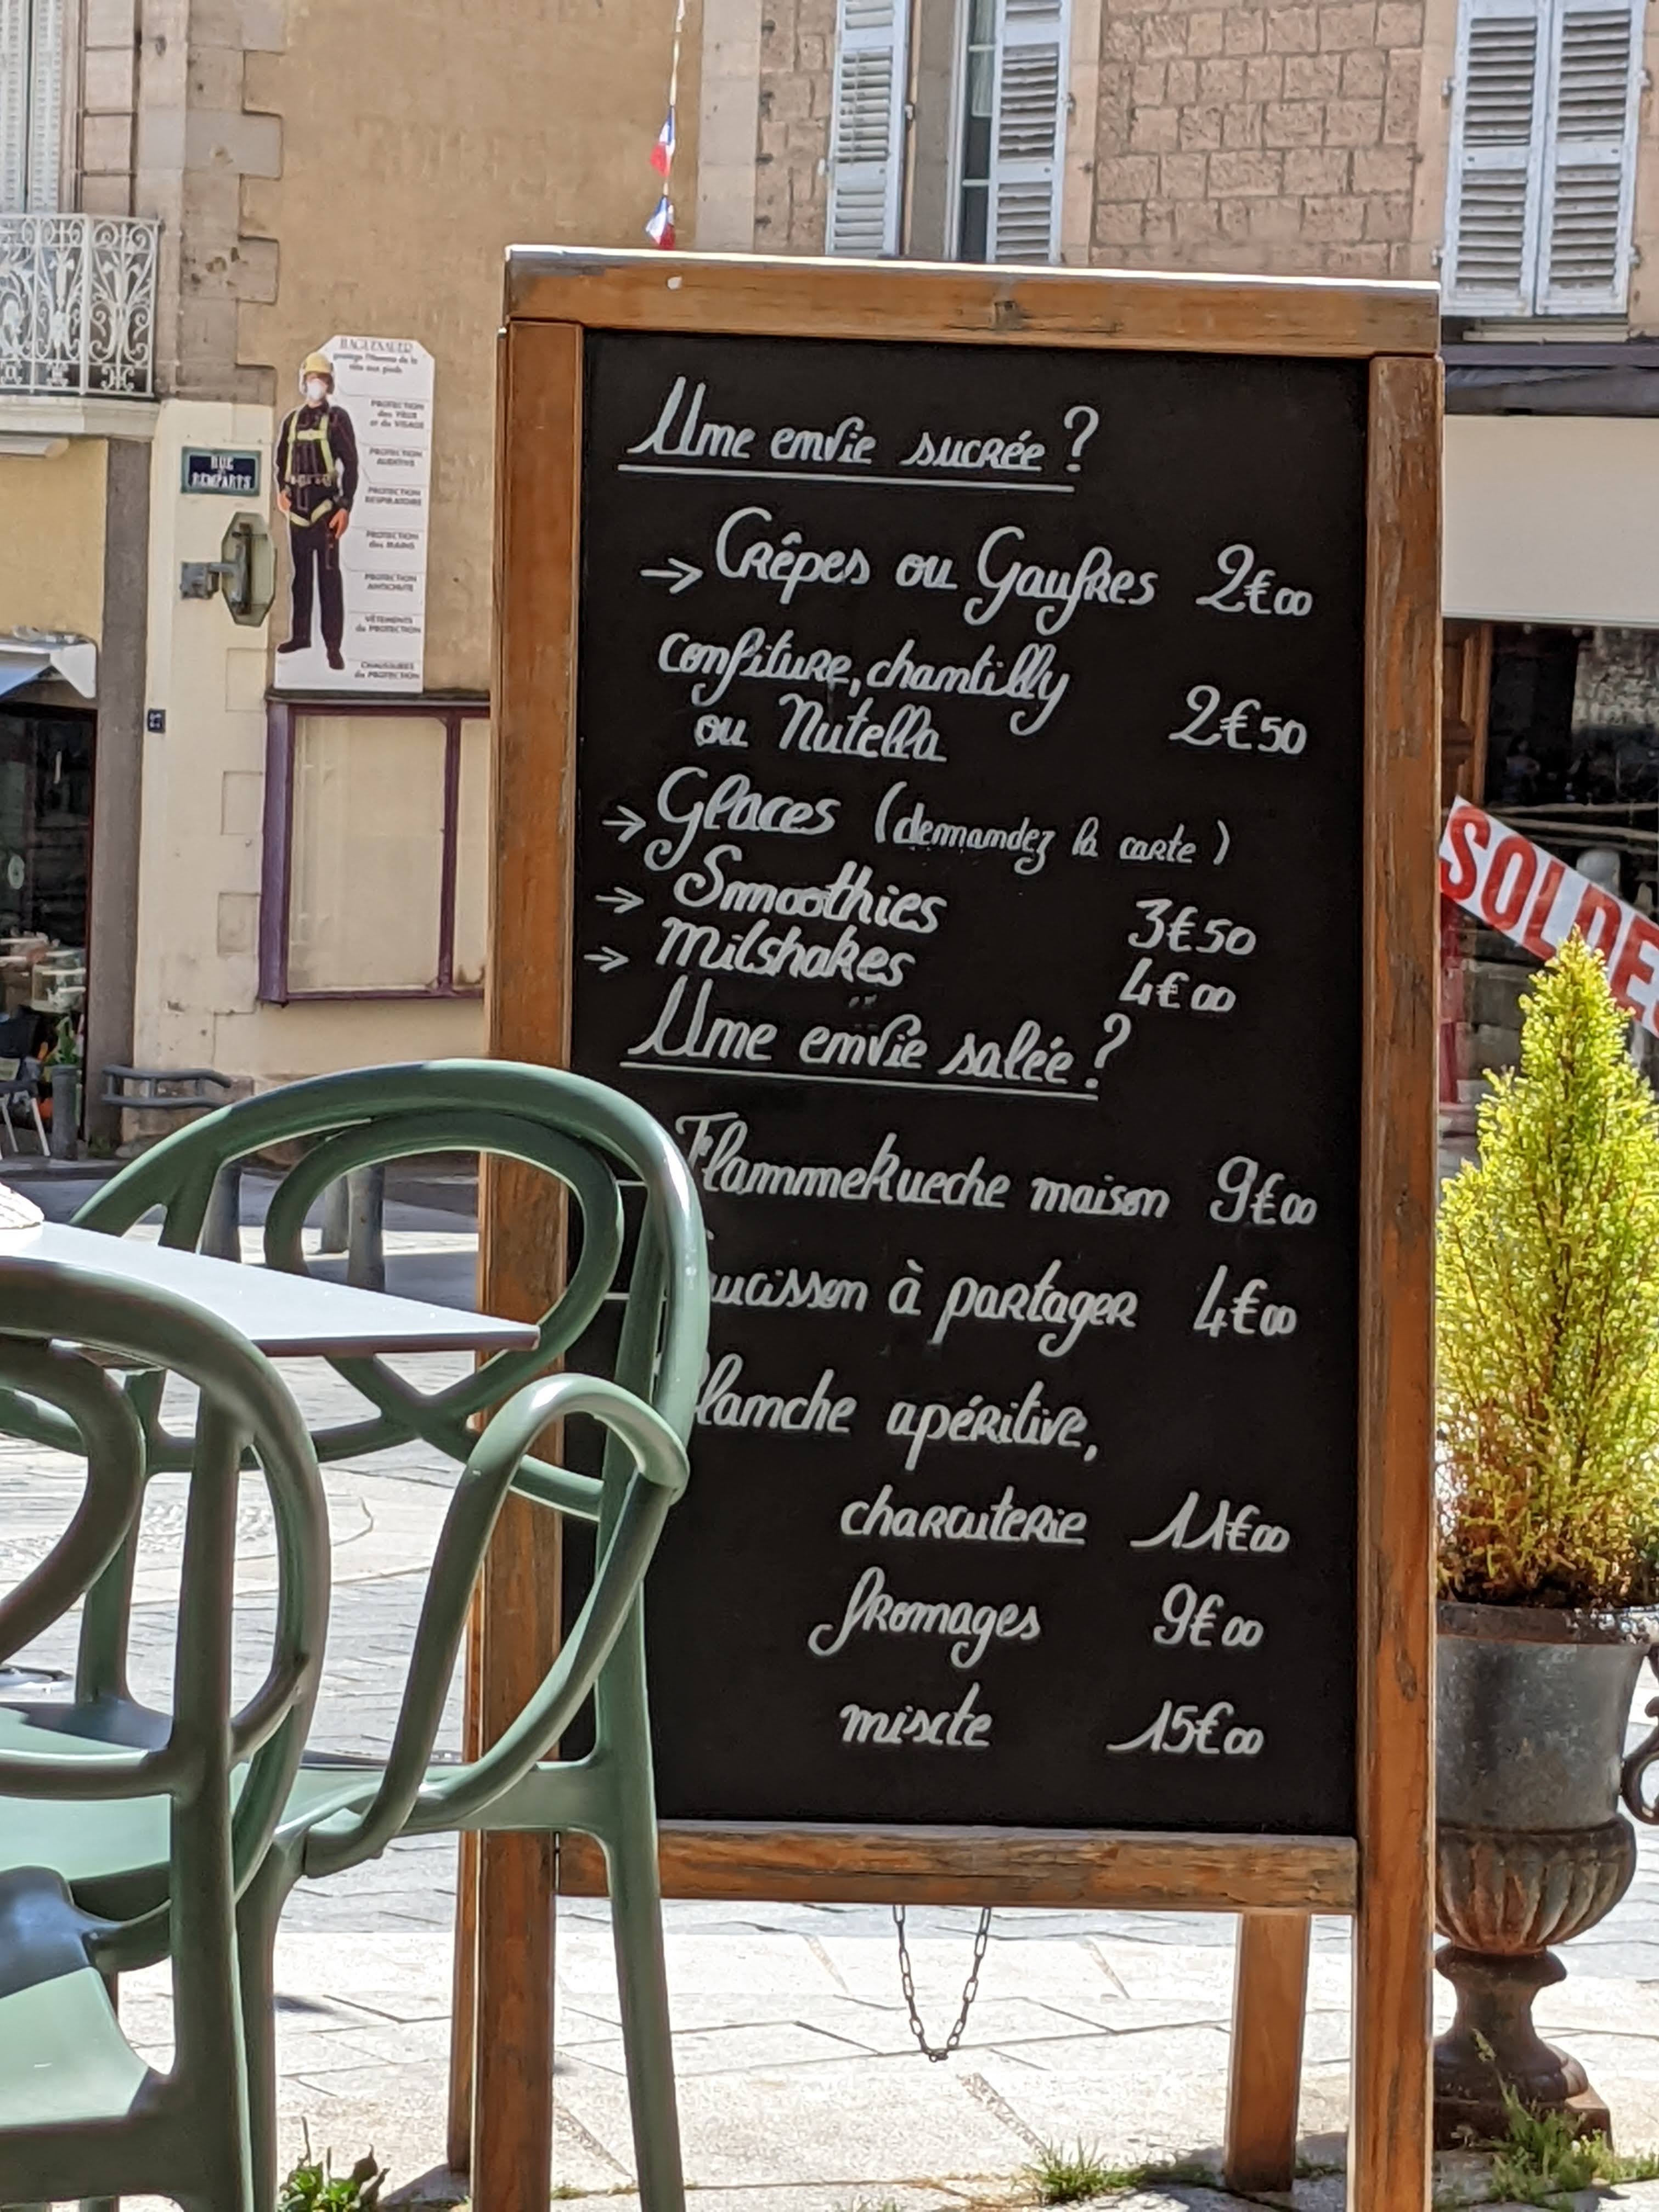 BAGUENAUER
protège l'Homme de la
tête aux pieds
PROTECTION
des YEUX
et du VISAGE
PROTECTION
AUDITIVE
PROTECTION
RESPIRATOIRE
PROTECTION
des MAINS
PROTECTION
ANTICHUTE
VÊTEMENTS
de PROTECTION
CHAUSSURES
de PROTECTION
RUE
REMPARTS
Une envie sucrée ?
→ Crêpes ou Gaufres 2€00
confiture, chantilly
ou Nutella 2€50
→ Glaces (demandez la carte)
→ Smoothies 3€50
→ Milshakes 4€00
Une envie salée ?
Flammekueche maison 9€00
ucisson à partager 4€00
Planche apéritive,
charcuterie 11€00
fromages 9€00
mixte 15€00
SOLDES